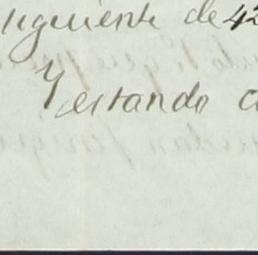 siguiente de 42
Y estando